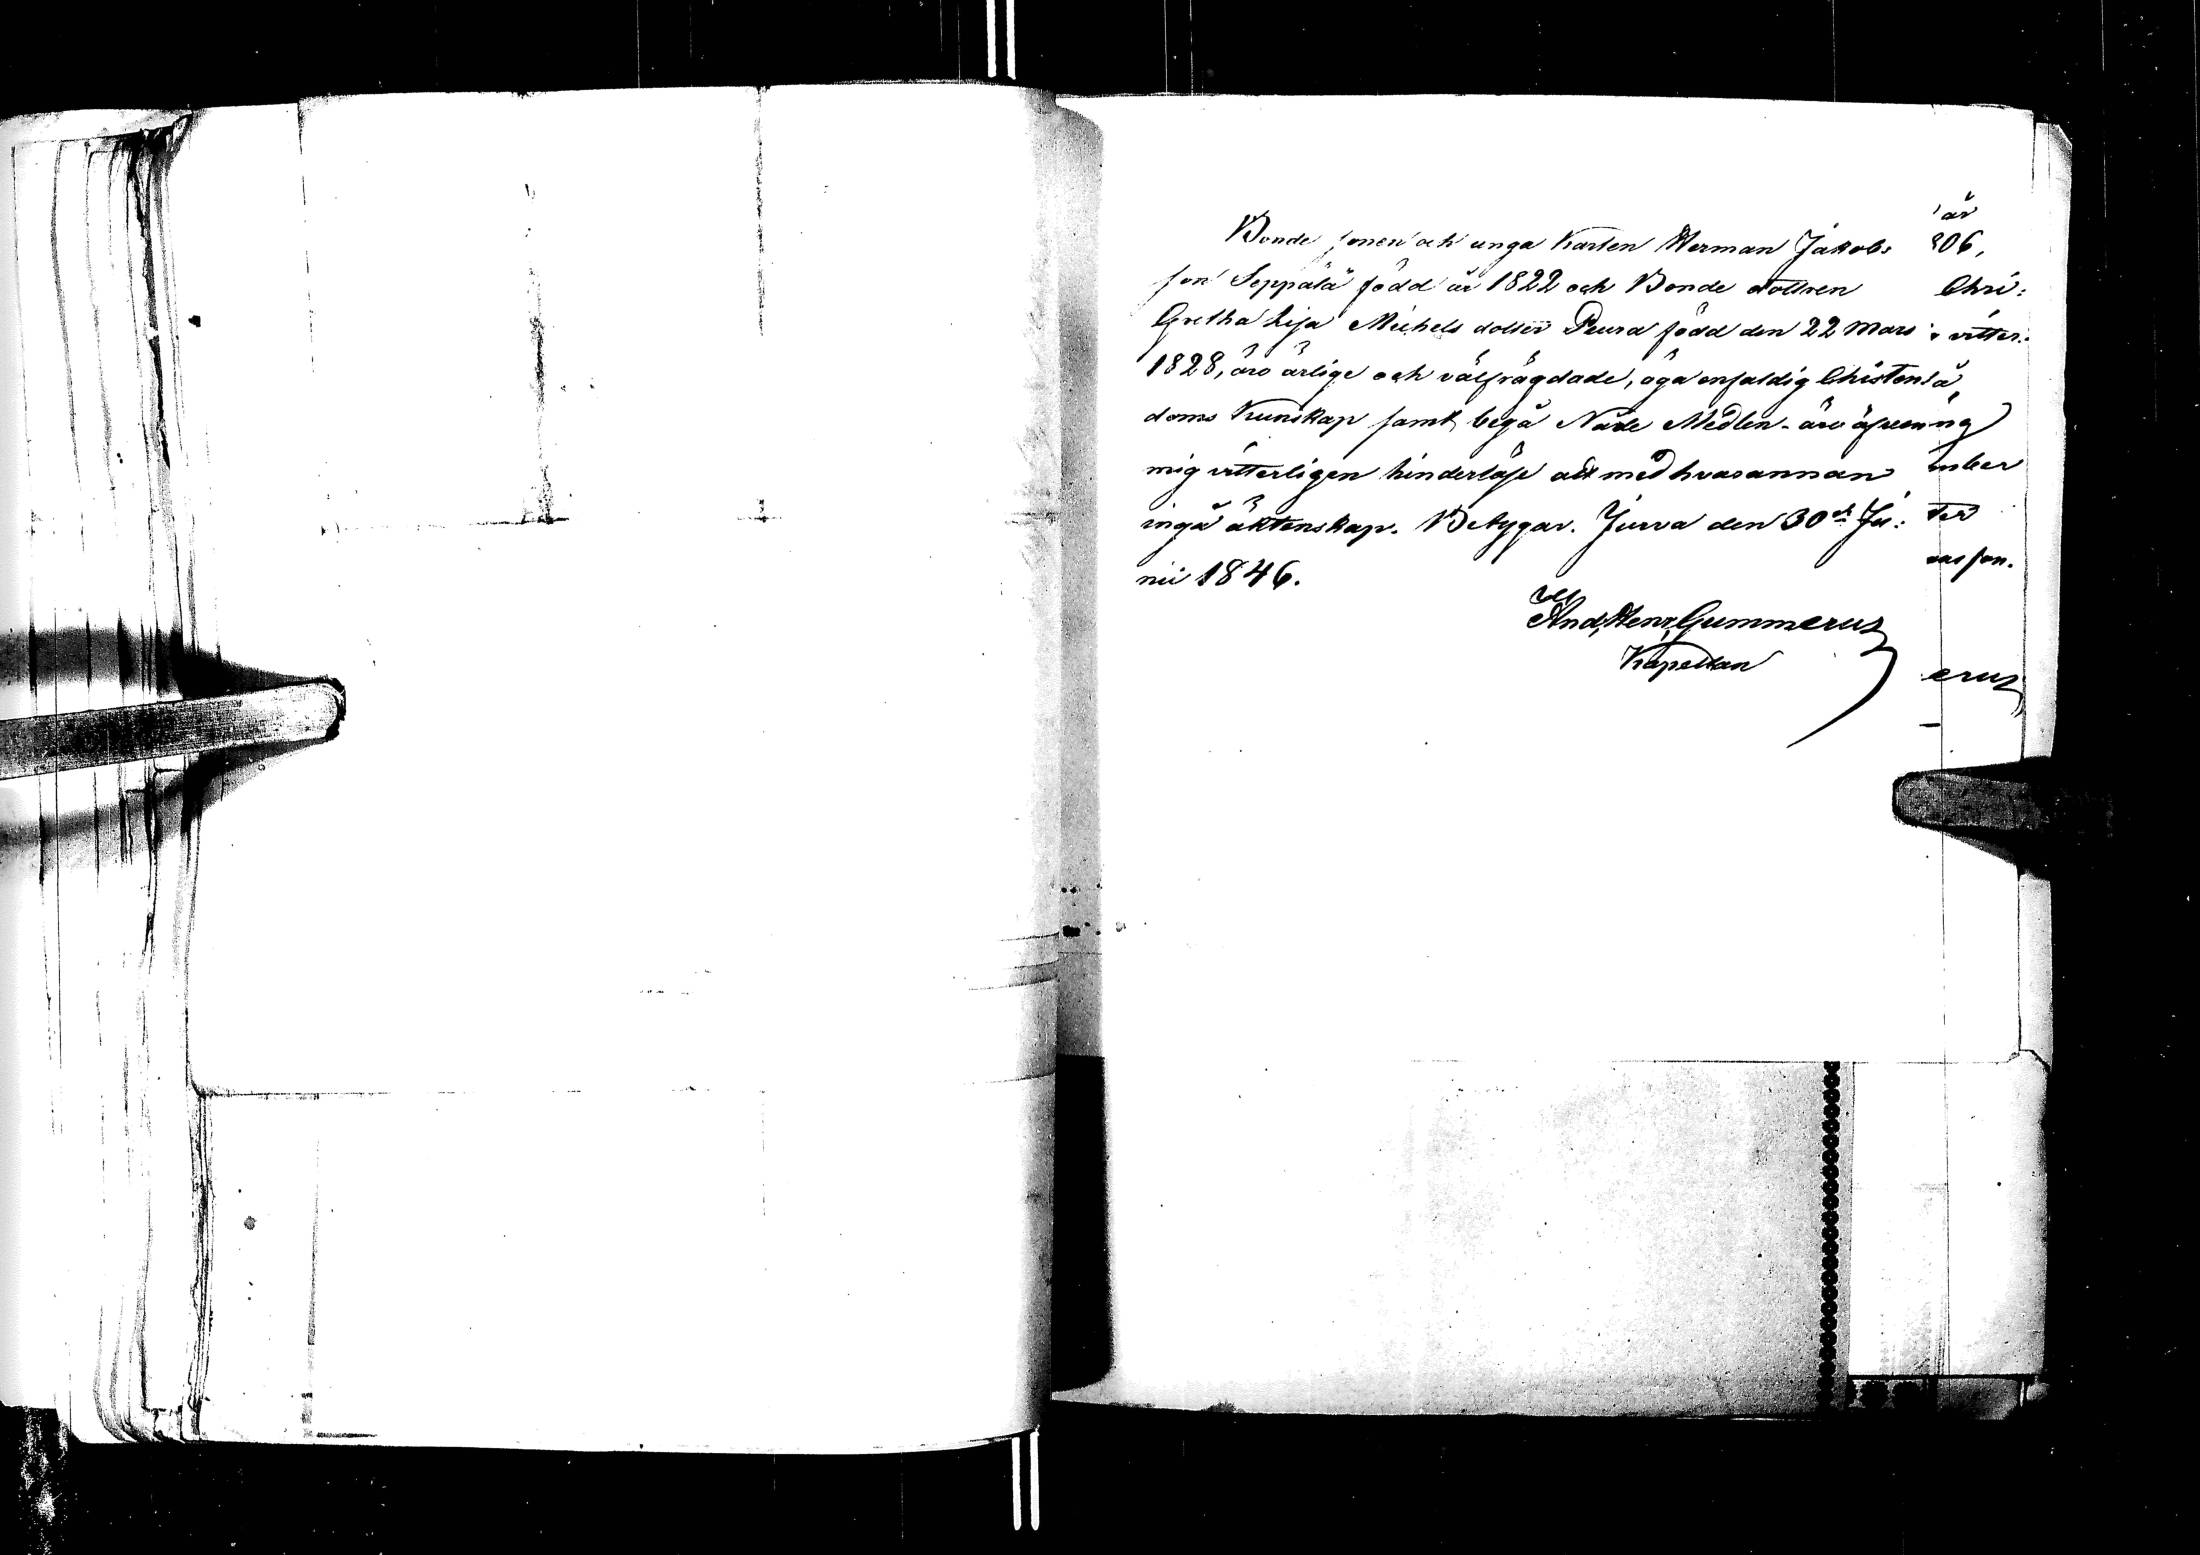 Bonde sonen och unga Karlen Herman Jakobs
son Seppälä född år 1822 och Bonde dottren
Gretha Lisa Michels dotter Peura född den 22 Mars
1828, äro ärlige och välfrägdade, äga enfaldig Christen
doms Kunskap samt begå Nåde Medlen - äro äfven
mig vitterligen hinderlöse att med hvarannan
ingå äktenskap. Betygar. Jurva den 30de Ju:
nii 1846.
And. Henr. Gummerus
Kapellan
år
806,
Chri:
vitter:
å
ng
mber
ter
son.
erus